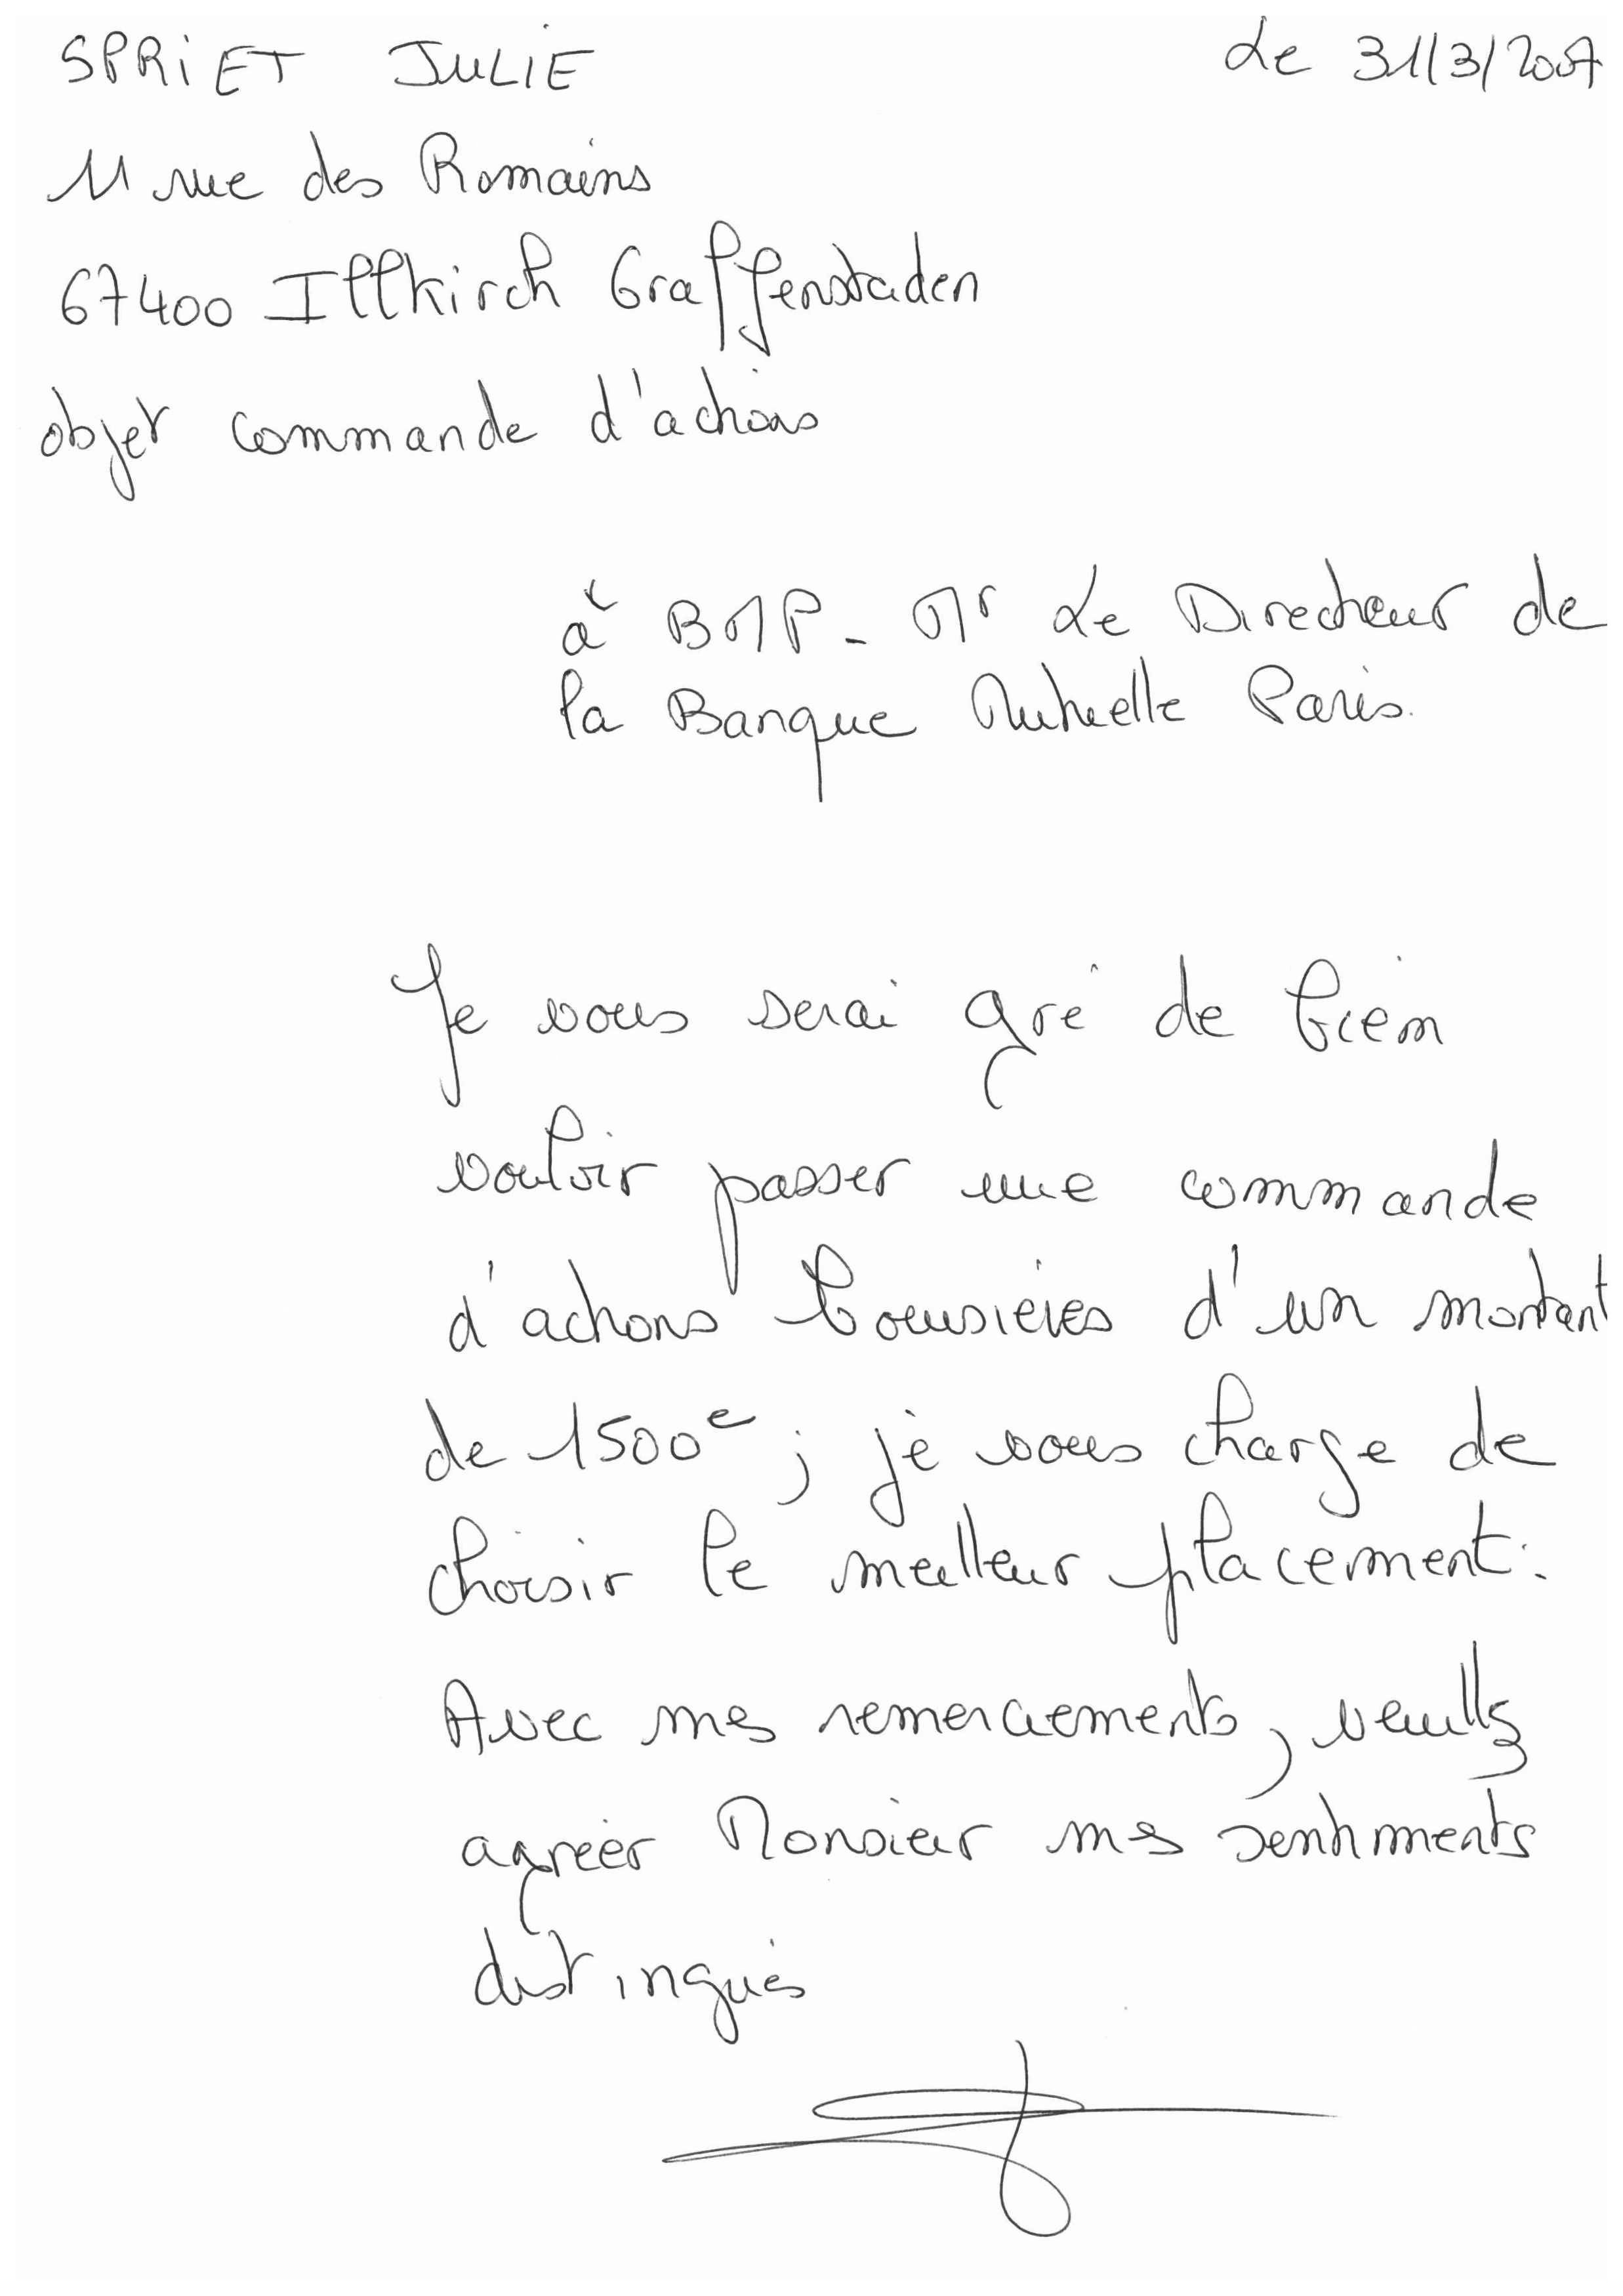 SPRiET JULIE Le 31/3/2007
11 rue des Romains
67400 Illkirch Graffenstaden
objet commande d'actions
à BMP - Mr Le Directeur de
la Banque Mutuelle Paris.
Je vous serai gré de bien
vouloir passer une commande
d'actions boursières d'un montant
de 1500e ; je vous charge de
choisir le meilleur placement.
Avec mes remerciements, veuillez
agréer Monsieur mes sentiments
distingués